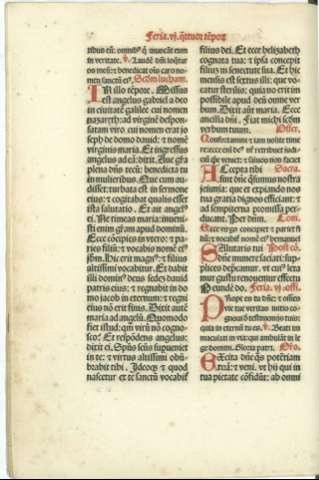 Feria. vj. q̃tuor tẽpoꝝ
tibus eũ: omnibꝰ q̃ inuocãt eum
in veritate. ℣. Laudẽ dñi loq̃tur
os meũ: ⁊ benedicat oĩs caro no-
men sanctũ eiꝰ. Scd̃m lucham.
IN illo tẽpore. Missus
est angelus gabriel a deo
in ciuitatẽ galilee cui nomen
nazareth: ad virginẽ despon-
satam viro cui nomen erat io
seph de domo dauid: ⁊ nomẽ
virginis maria. Et ingressus
angelus ad eã: dixit. Aue gr̃a
plena dñs tecũ: benedicta tu
in mulieribus. Que cum au-
disset: turbata est in sermone
eius: ⁊ cogitabat qualis esset
ista salutatio. Et ait angelꝰ
ei. Ne timeas maria: inueni-
sti enim gr̃am apud dominũ.
Ecce cõcipies in vtero: ⁊ pa-
ries filiũ: ⁊ vocabis nomẽ eiꝰ
jhm̃. Hic erit magnꝰ: ⁊ filius
altissimi vocabitur. Et dabit
illi dominꝰ deus sedẽ dauid
patris eius: ⁊ regnabit in do
mo jacob in eternum: ⁊ regni
eius nõ erit finis. Dixit autẽ
maria ad angelũ. Quomodo
fiet istud: qm̃ virũ nõ cogno-
sco? Et respõdens angelus:
dixit ei. Sp̃ũs sctũs supueniet
in te: ⁊ virtus altissimi obũ-
brabit tibi. Ideoq̃ ⁊ quod
nascetur ex te sanctũ vocabit̃
filius dei. Et ecce helizabeth
cognata tua: ⁊ ipsa concepit
filiuz in senectute sua. Et hic
mensis est sextus illi: que vo-
catur sterilis: quia nõ erit im
possibile apud deũ omne ver
bum. Dixit aũt maria. Ecce
ancilla dñi. Fiat michi scd̃m
verbum tuum. Offer.
Confortamini ⁊ iam nolite time
re: ecce eni deꝰ nr̃ retribuet iudi-
ciũ: ip̃e veniet: ⁊ saluos nos faciet
ACcepta tibi Secra.
sint dñe q̃sumus nostra
jeiunia: que et expiando nos
tua gratia dignos efficiant: ⁊
ad sempiterna promissa per-
ducant. Per dñm. Com.
Ecce virgo concipiet ⁊ pariet fi
liũ: ⁊ vocabit̃ nomẽ eiꝰ hemanuel
SAlutaris tui Post cõ.
dñe munere saciati: sup-
plices depcamur. vt cuiꝰ leta
mur gustu renouemur effectu
Per eundẽ dñm. Feria. vj. offi.
PRope es tu dñe: ⁊ oẽs
vie tue veritas initio co-
gnoui d̃ testimoniis tuis:
quia in eternũ tu es. ℣. Beati im
maculati in via: qui ambulãt in le
ge domini. Gloria patri. Oro.
EXcita dñe q̃s potẽtiam
tuã: ⁊ veni. vt hii qui in
tua pietate cõfidũt: ab omni